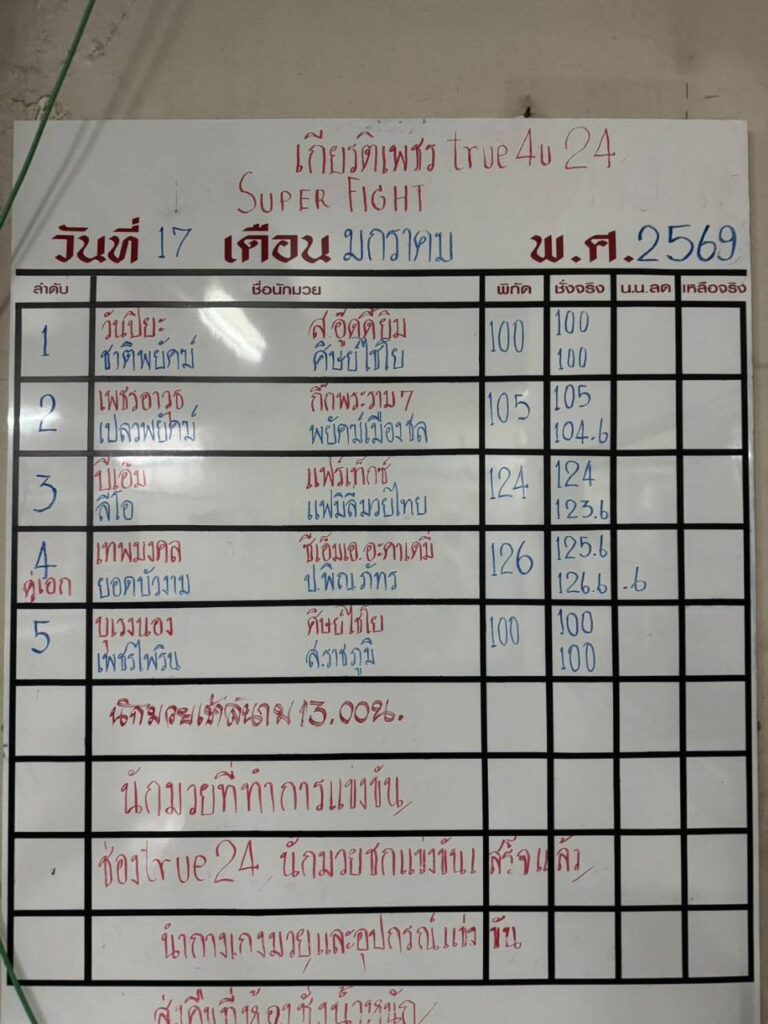 เกียรติเพชร true4u 24
SUPER FIGHT
วันที่ 17 เดือน มกราคม พ.ศ. 2569
ลำดับ ชื่อนักมวย พิกัด ชั่งจริง น.น.ลด เหลือจริง
1 วันปิยะ ส.อู๊ดดี้ยิม 100 100
ชาติพยัคฆ์ ศิษย์ไชโย 100
2 เพชรอาวุธ กี๊กพระราม7 105 105
เปลวพยัคฆ์ พยัคฆ์เมืองชล 104.6
3 บีเอ็ม แฟร์เท็กซ์ 124 124
ลีโอ แฟมิลี่มวยไทย 123.6
4 เทพมงคล ซีเอ็มเอ.อะคาเดมี่ 126 125.6
คู่เอก ยอดบัวงาม ป.พิณภัทร 126.6 .6
5 บุเวงนอง ศิษย์ไชโย 100 100
เพชรไพริน ส.ราชภูมิ 100
นักมวยเข้าสนาม 13.00น.
นักมวยที่ทำการแข่งขัน
ช่องtrue24 นักมวยชกแข่งขันเสร็จแล้ว
นำกางเกงมวยและอุปกรณ์แข่งขัน
ส่งคืนที่ห้องชั่งน้ำหนัก